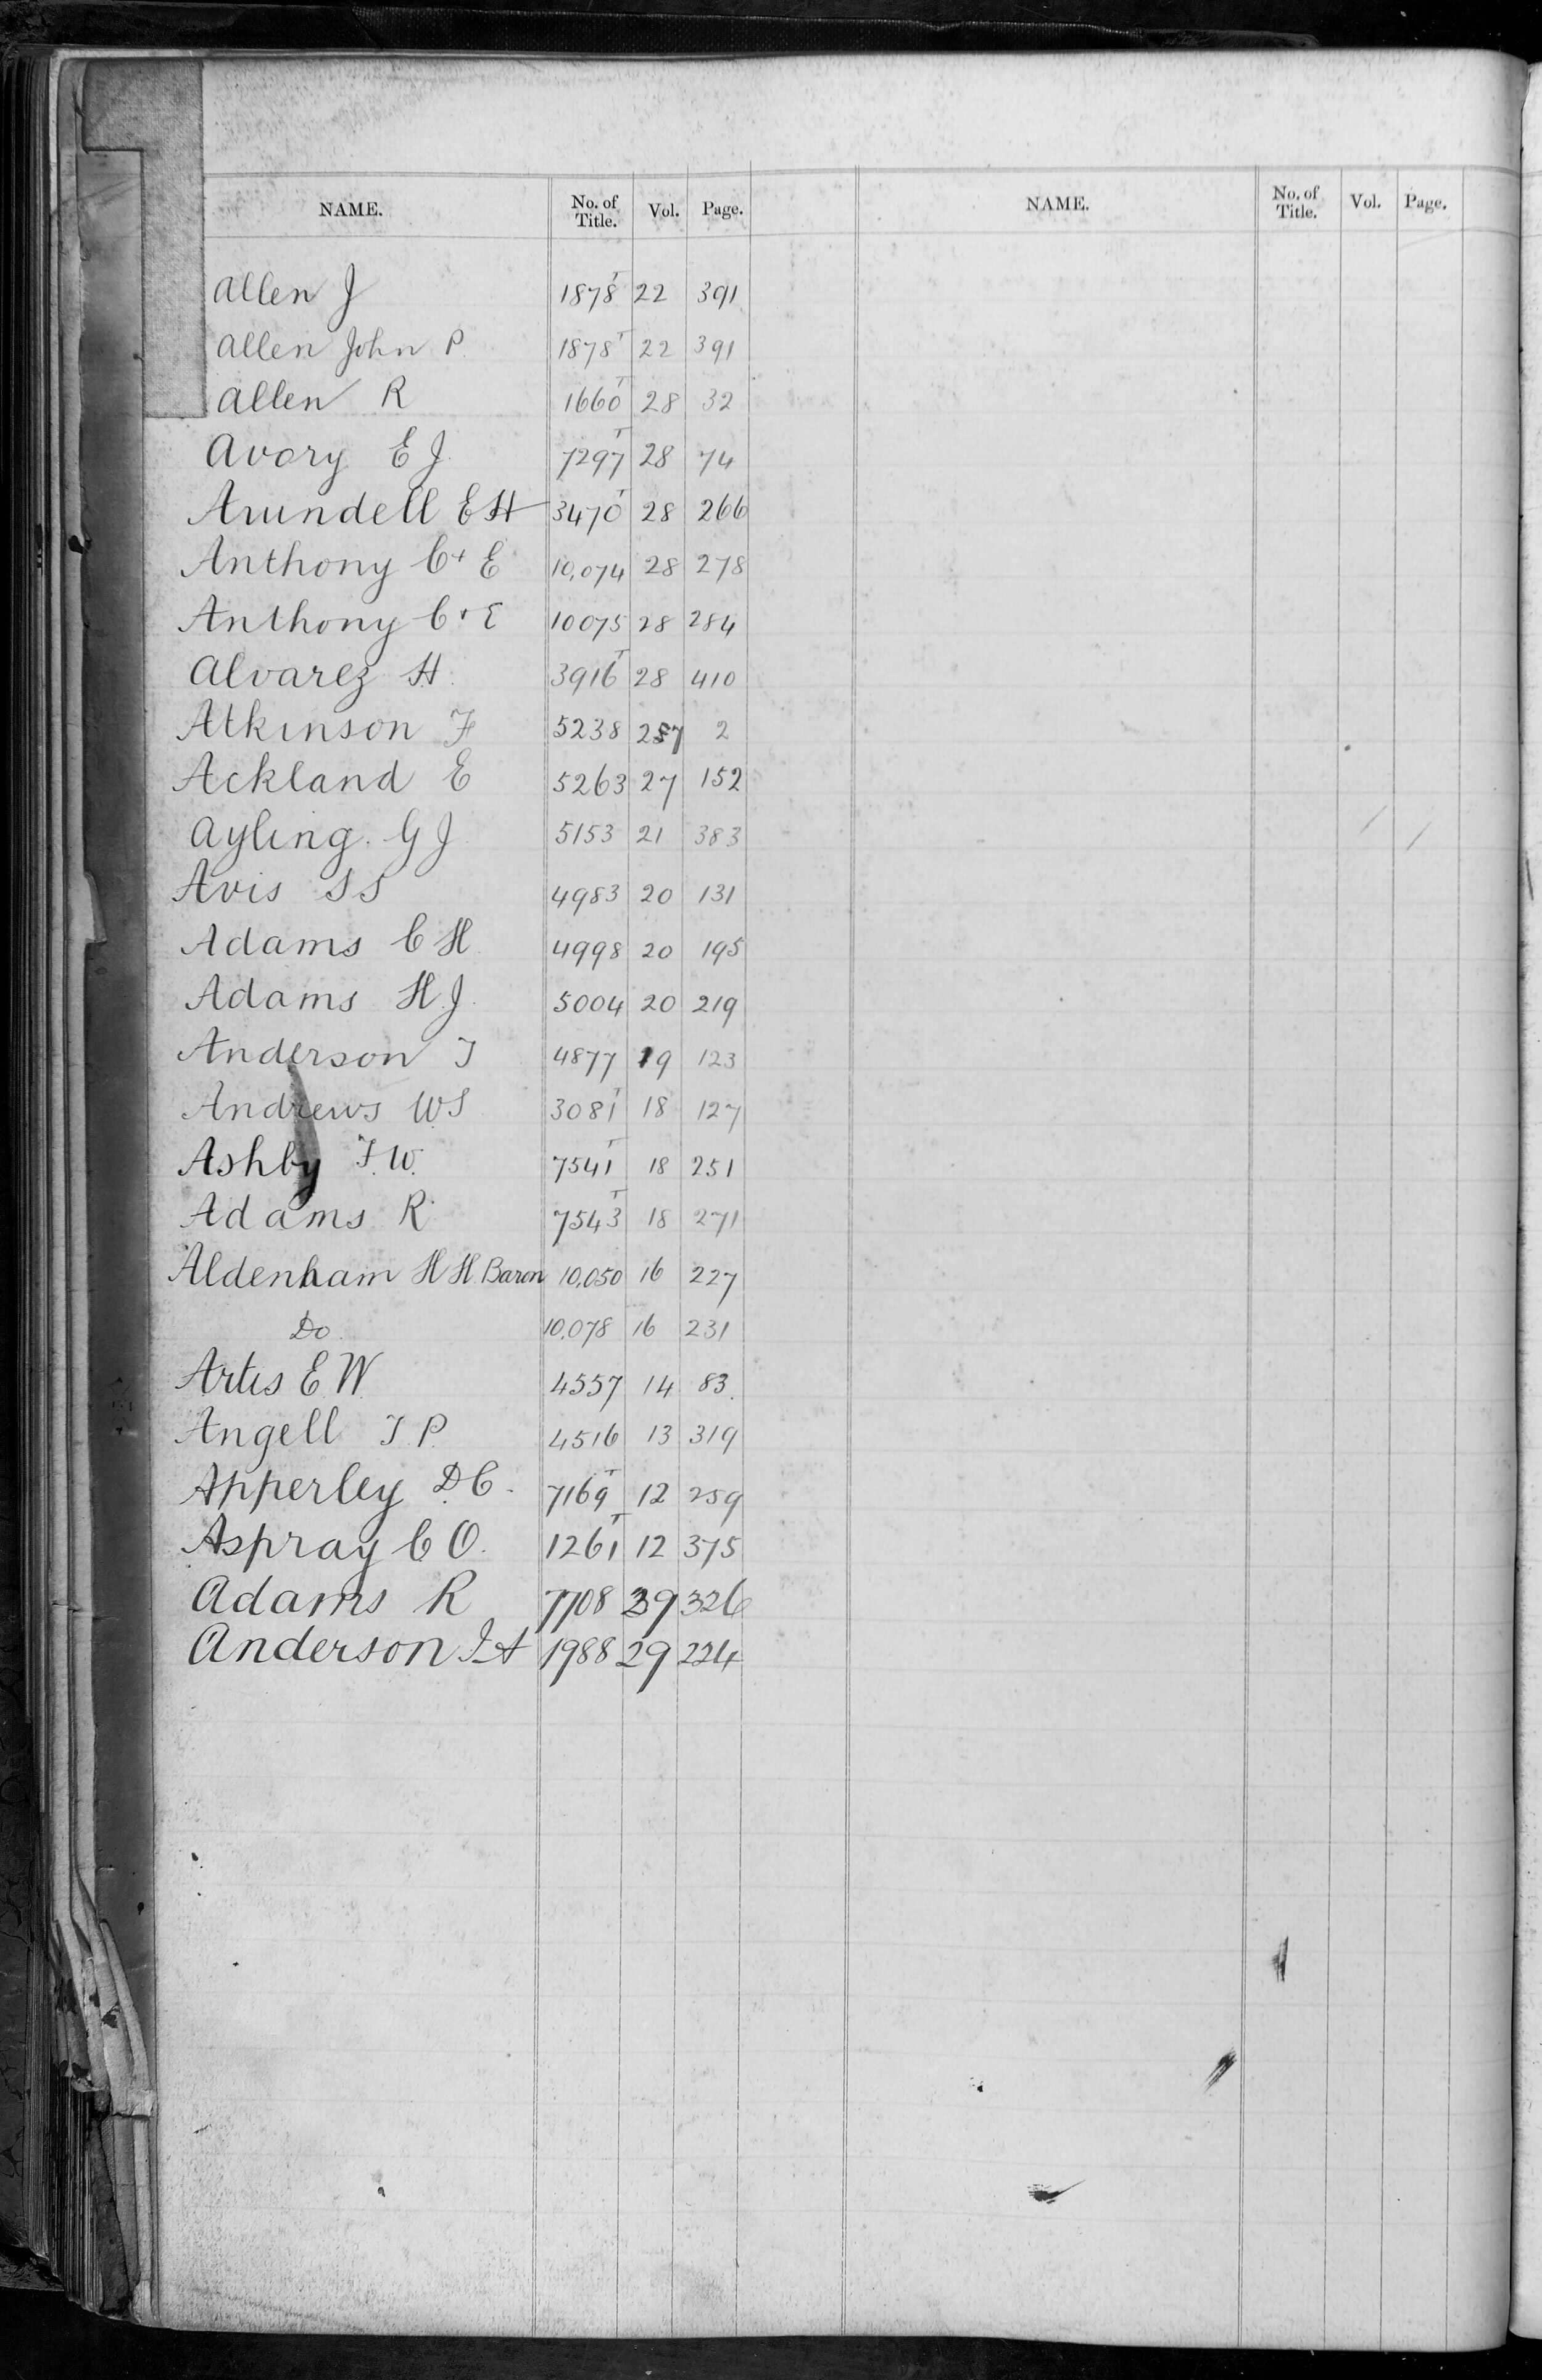 NAME. No. of Title. Vol. Page. NAME. No. of Title. Vol. Page.
Allen J 1878 T 22 391
Allen John P. 1878 T 22 391
Allen R 1660 T 28 32
Avory E J. 7297 T 28 74
Arundell E H 3470 T 28 266
Anthony C + E 10,074 28 278
Anthony C + E 10075 28 284
Alvarez H. 3916 T 28 410
Atkinson F 5238 27 2
Ackland E 5263 27 152
Ayling. G J 5153 21 383
Avis S S 4983 20 131
Adams C H. 4998 20 195
Adams H.J. 5004 20 219
Anderson T 4877 19 123
Andrews W S 3081 T 18 127
Ashby F.W. 7541 T 18 251
Adams R. 7543 T 18 271
Aldenham H H. Baron 10,050 16 227
Do. 10,078 16 231
Artis E.W. 4557 14 83.
Angell T.P. 4516 13 319
Apperley D.C. 7169 T 12 259
Aspray C O. 1261 T 12 375
Adams R 7708 39 326
Anderson J A 1988 29 224